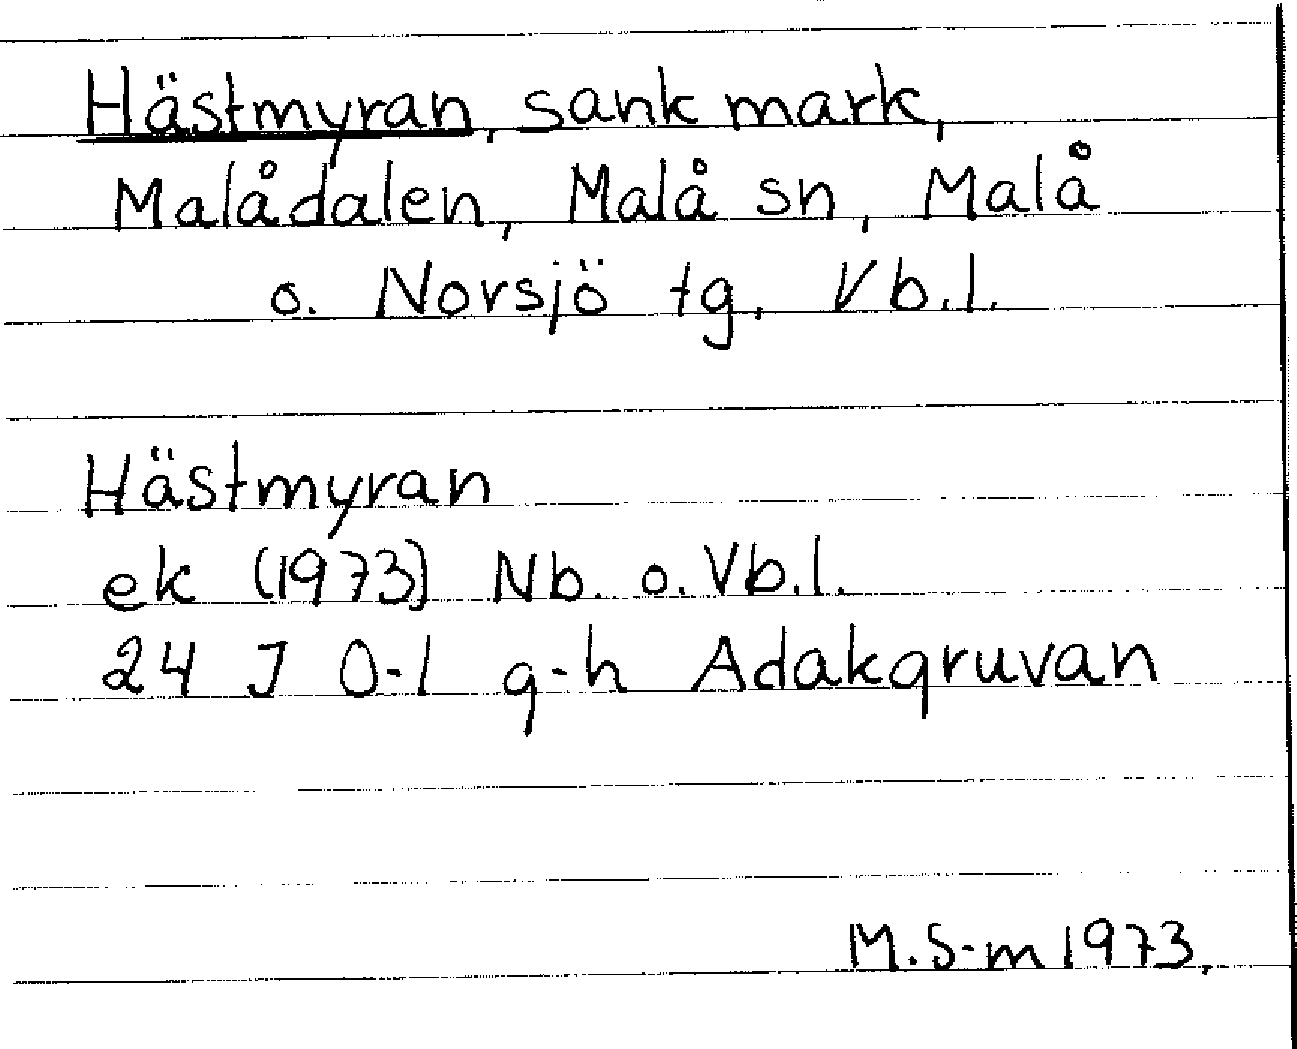 Hästmyran, sank mark,
Malådalen, Malå sn, Malå
o. Norsjö tg, Vb.l.
Hästmyran
ek (1973) Nb. o. Vb.l.
24 J 0-1 g-h Adakgruvan
M.S-m 1973.